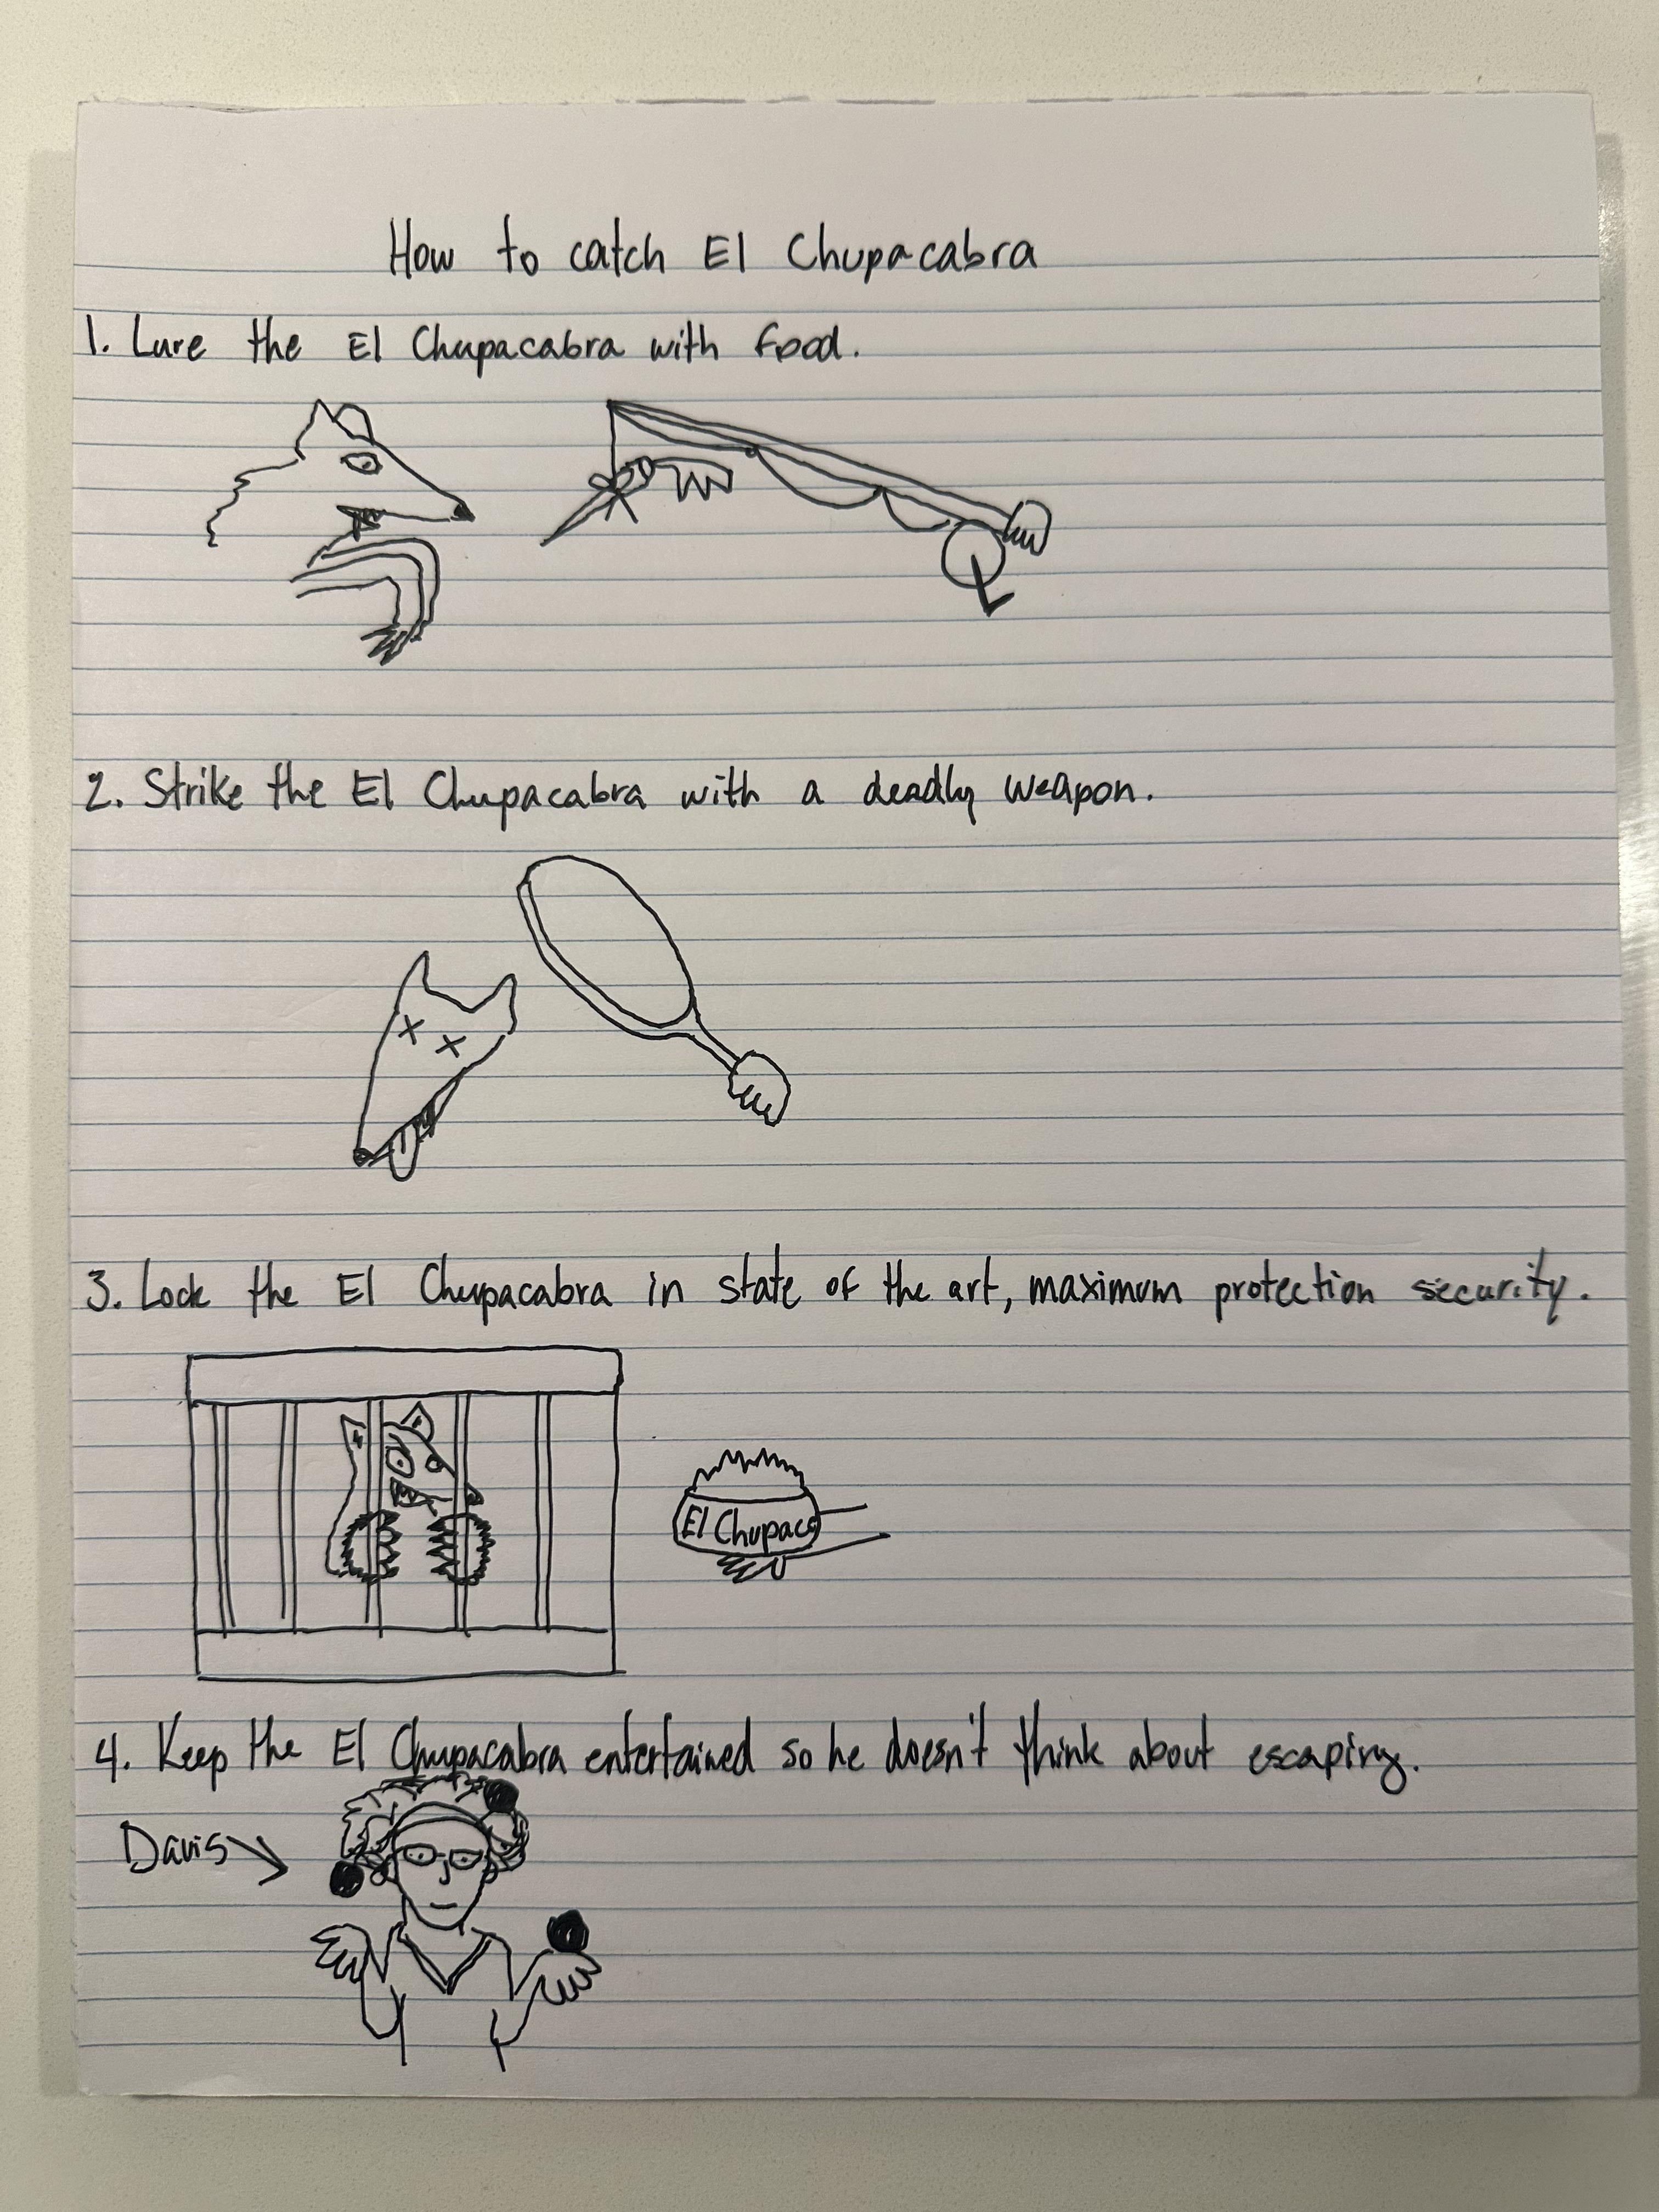 How to catch El Chupacabra
1. Lure the El Chupacabra with food.
2. Strike the El Chupacabra with a deadly weapon.
3. Lock the El Chupacabra in state of the art, maximum protection security.
El Chupaca
4. Keep the El Chupacabra entertained so he doesn't think about escaping.
Davis